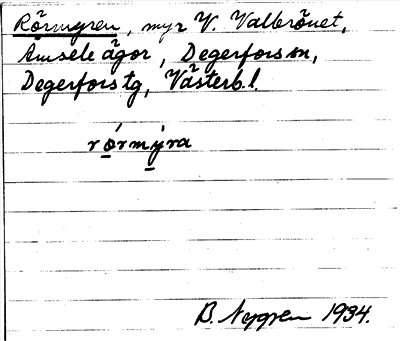 Rörmyren, myr V. Valbrånet,
Amsele ägor, Degerfors sn,
Degerfors tg, Västerb.l.
rórmýra
B. Nygren 1934.